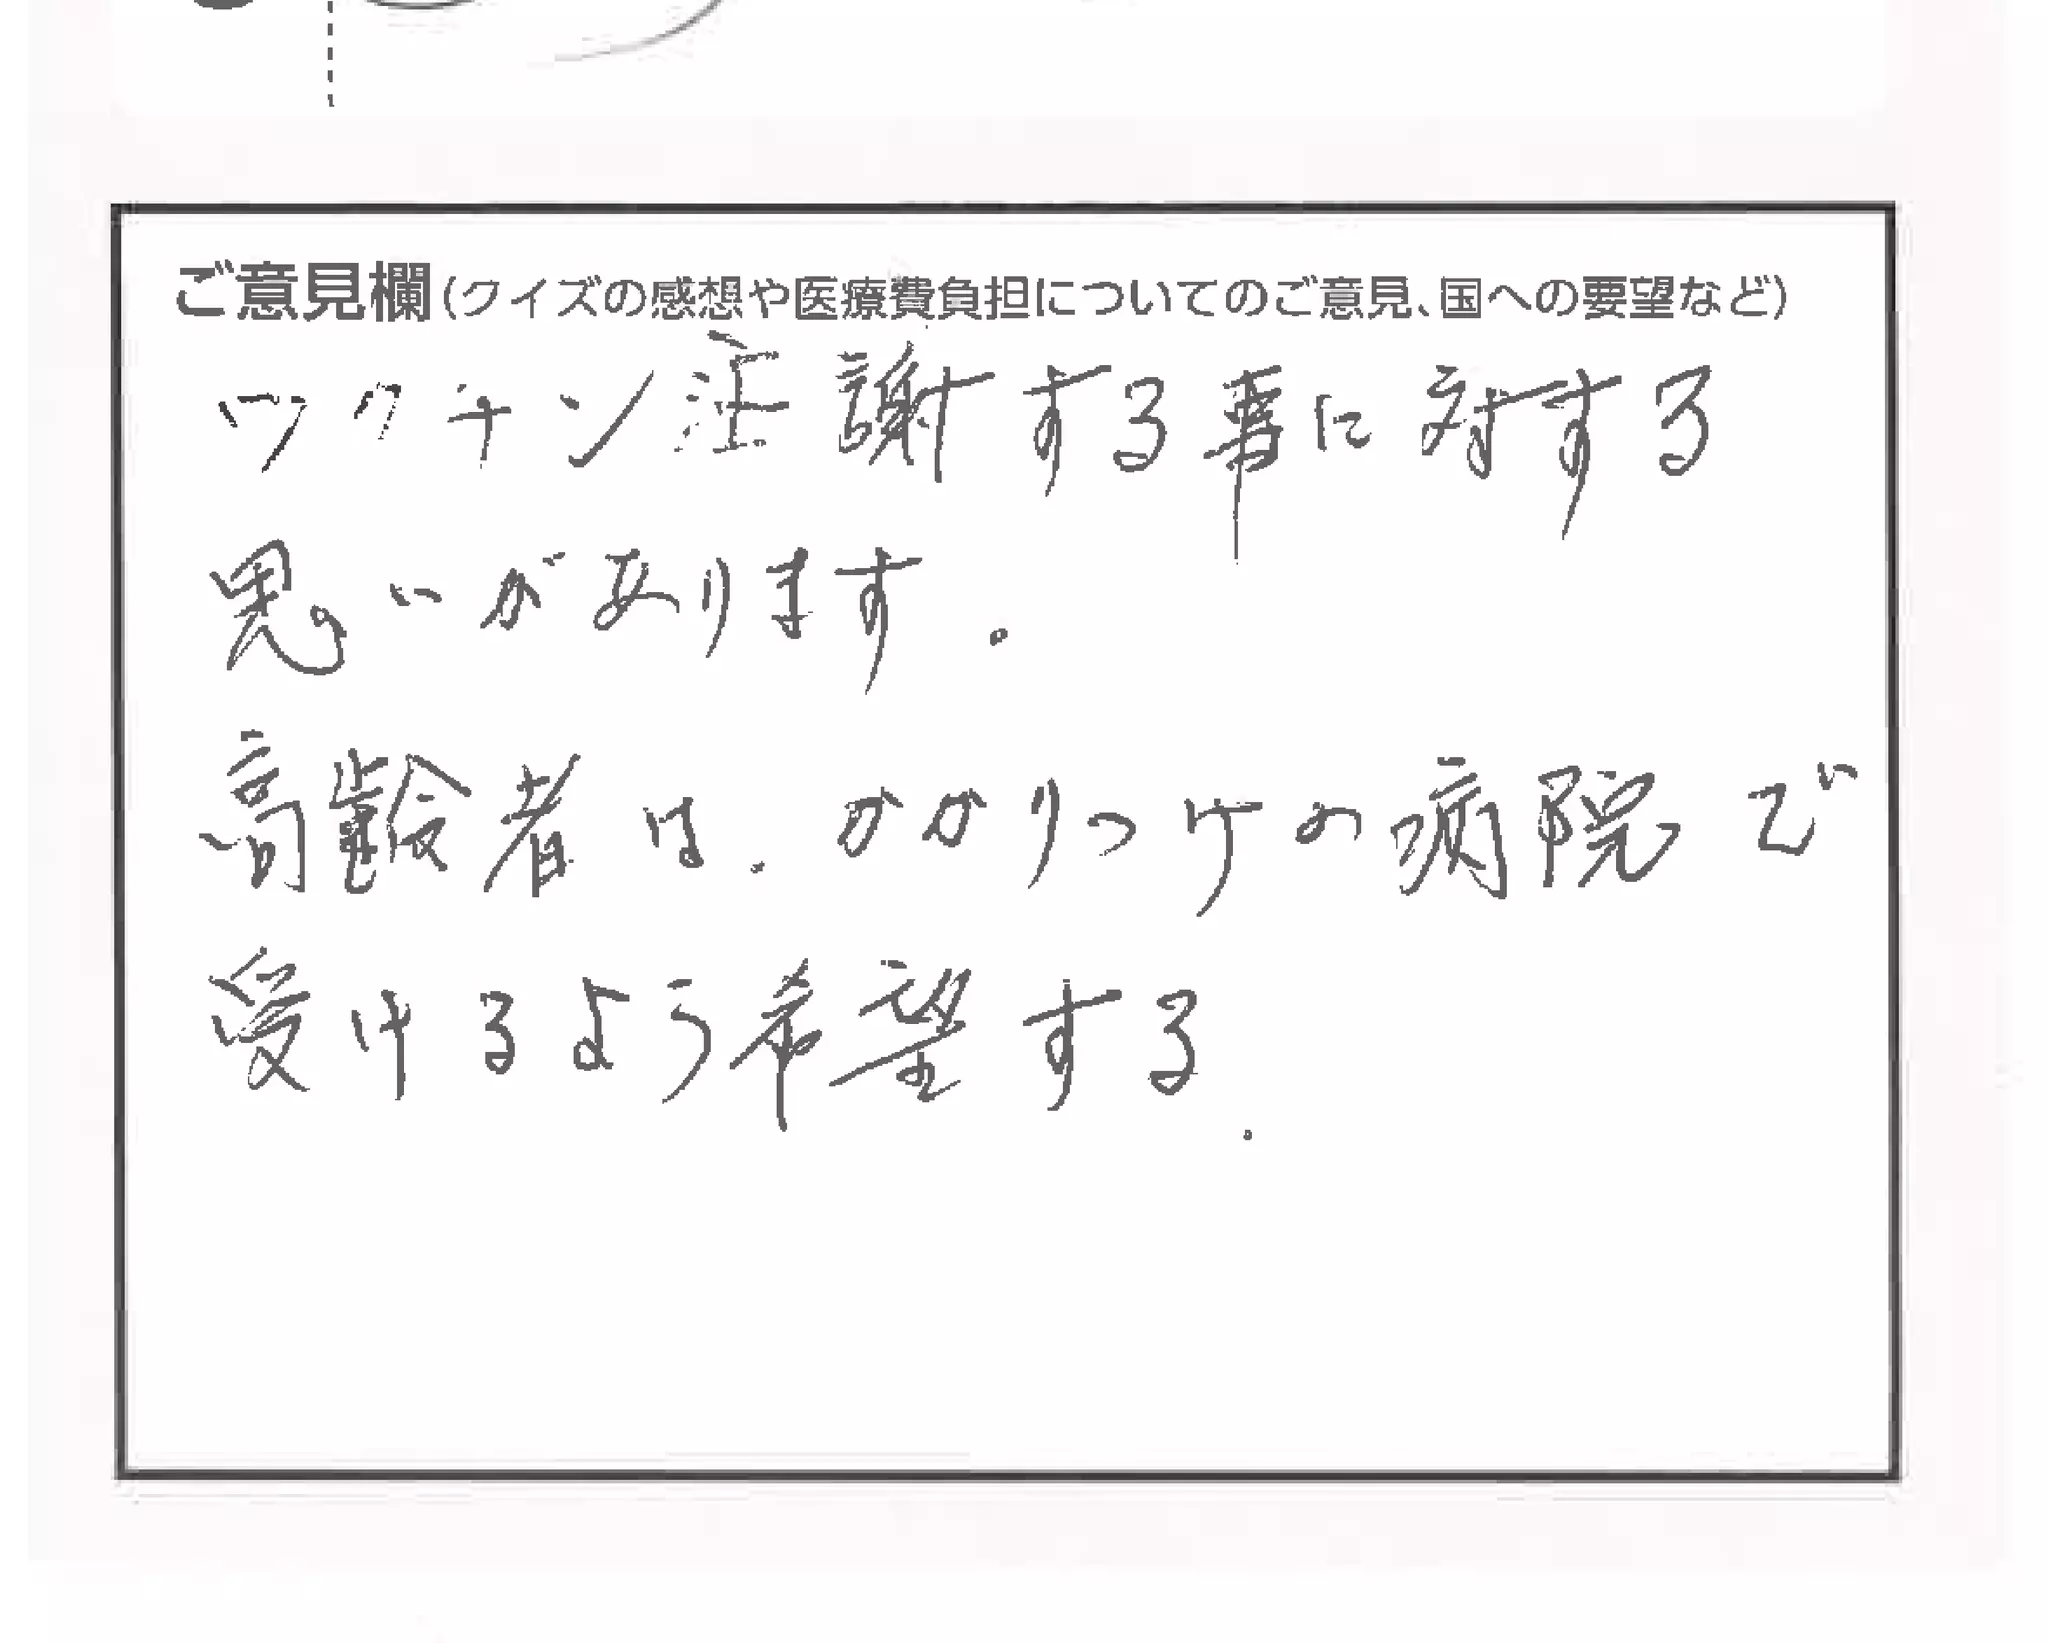 ご意見欄(クイズの感想や医療費負担についてのご意見、国への要望など)
ワクチン注謝する事に対する
思いがあります。
高齢者は、かかりつけの病院で
受けるよう希望する。